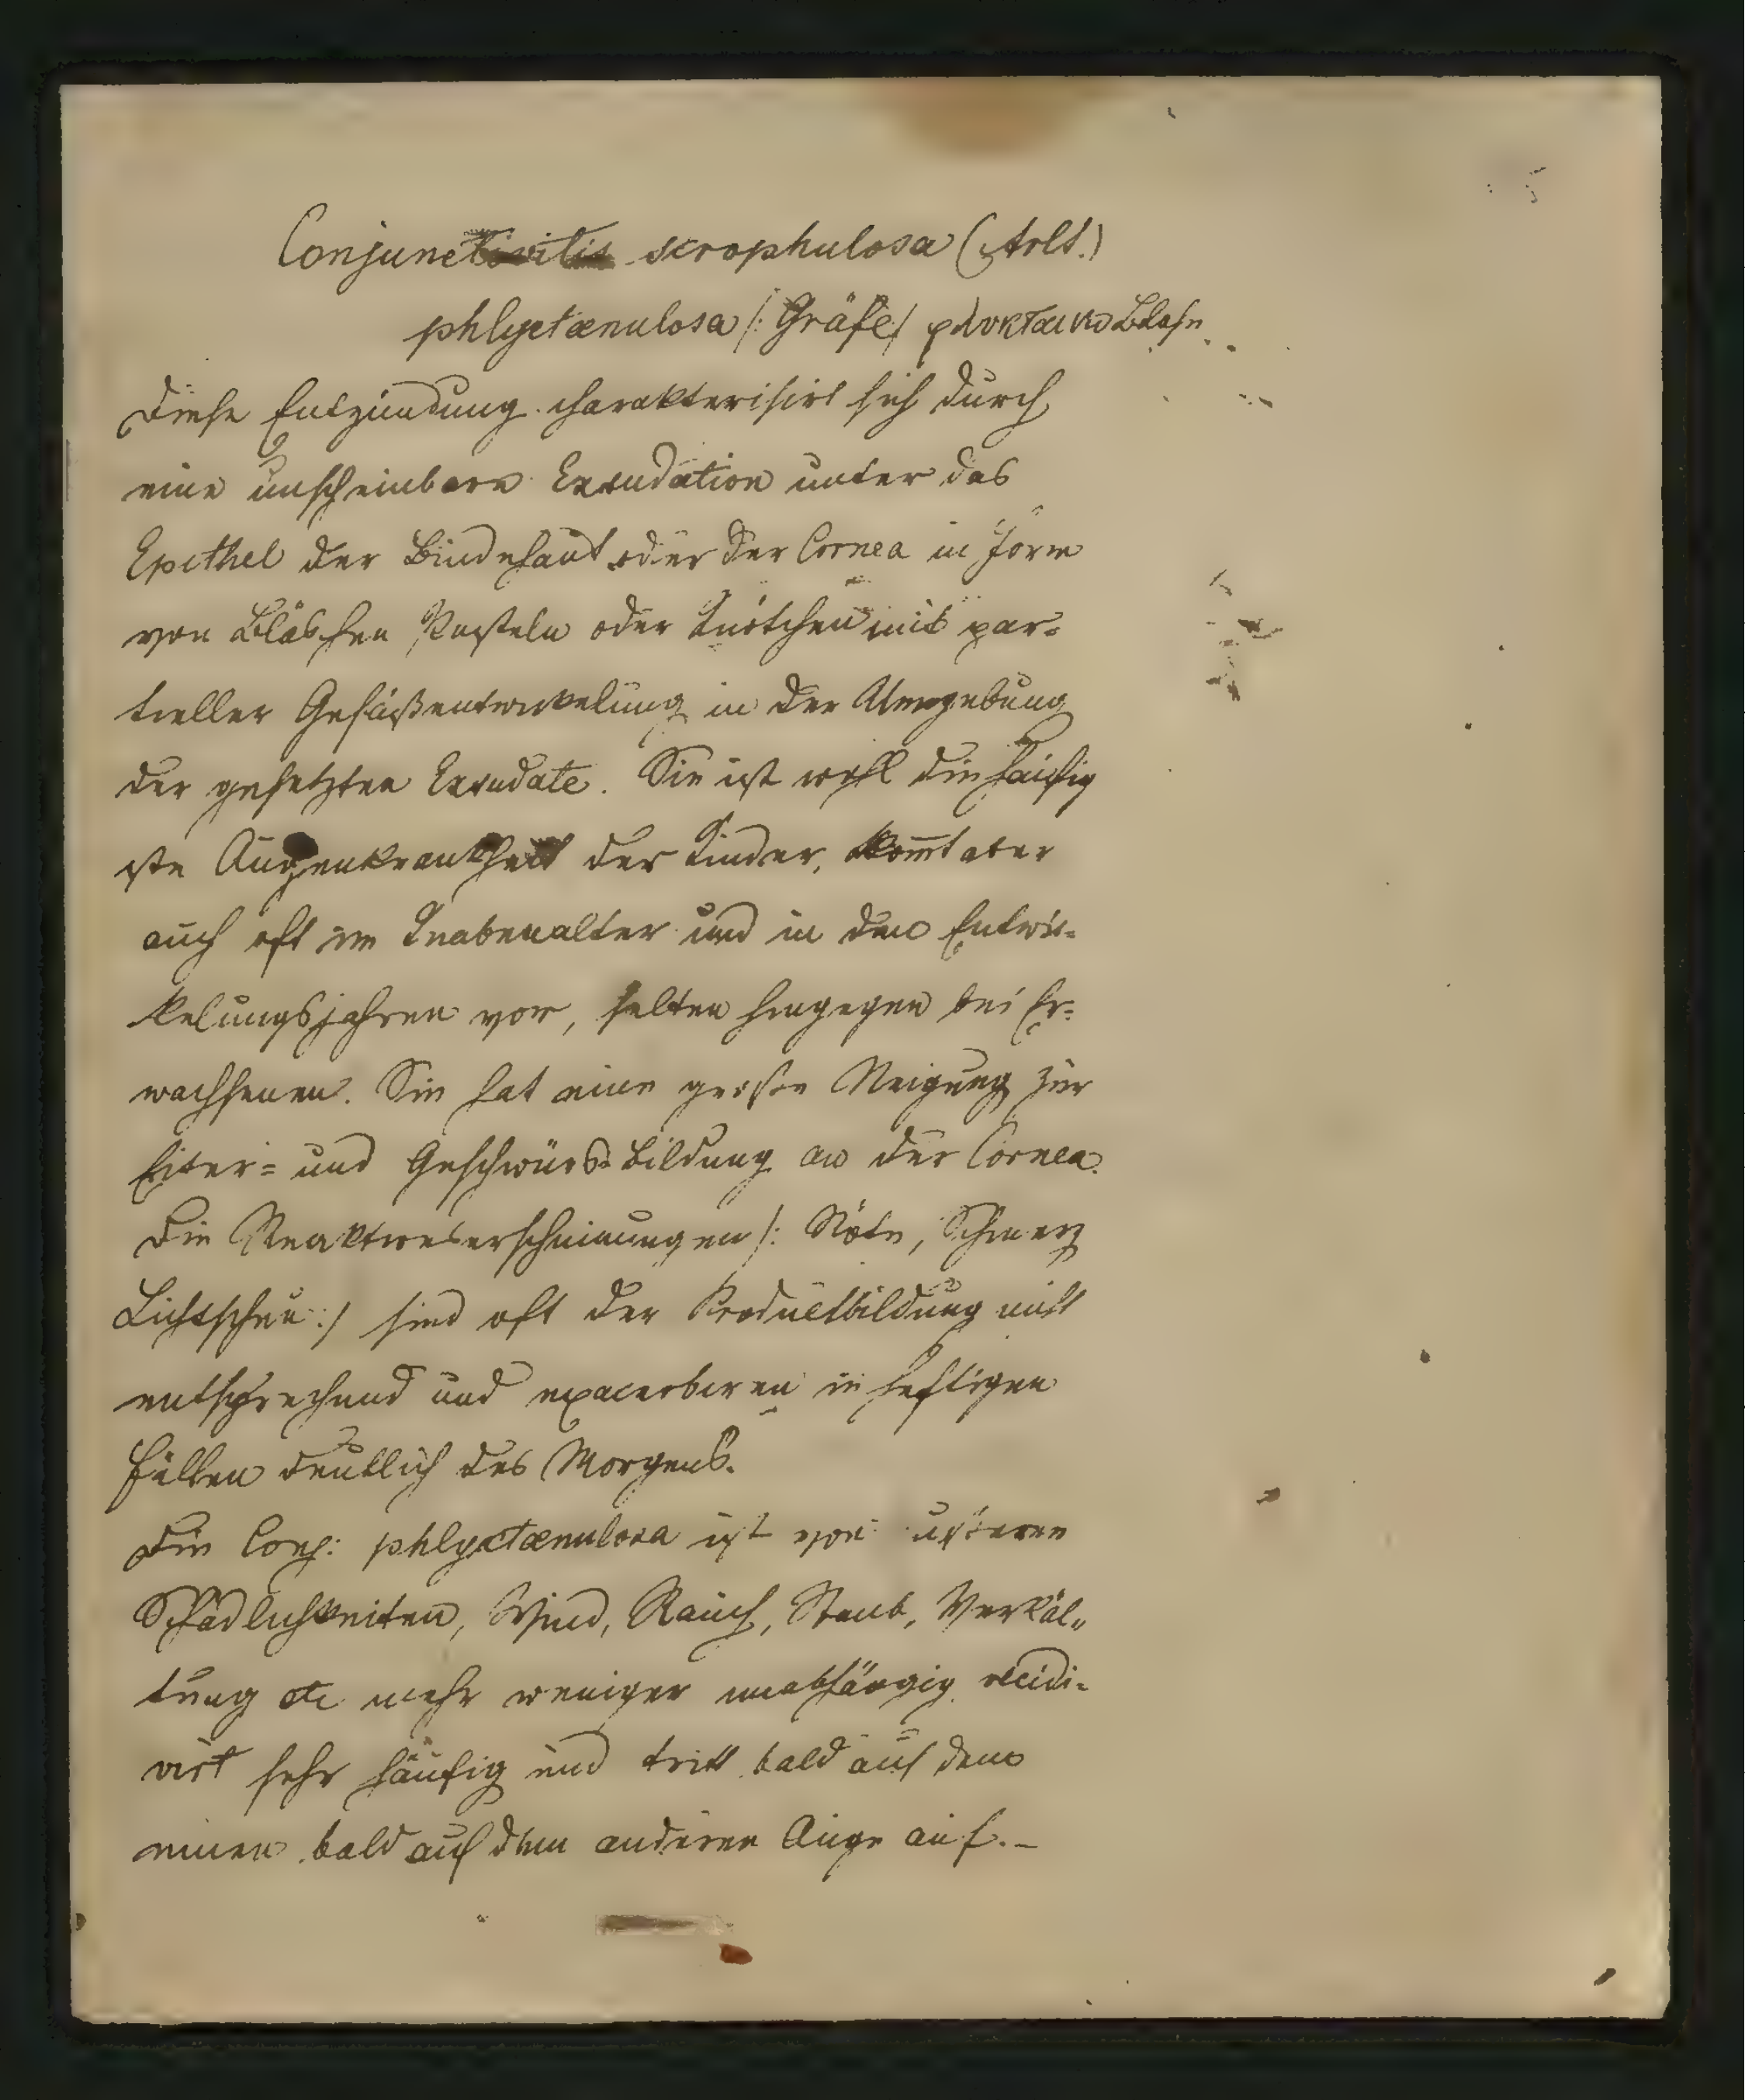 Conjunctivitis scrophulosa (Arlt.)
phlyctænulosa /: Gräfe / φλυκταινα Blase
Diese Entzündung charakterisirt sich durch
eine unscheinbare Exsudation unter das
Epithel der Bindehaut oder der Cornea in Form
von Bläschen Pusteln oder Knötchen mit par=
tieller Gefäßentwikelung in der Umgebung
der gesetzten Exsudate. Sie ist wohl die häufig
ste Augenkrankheit der Kinder, kom̅t aber
auch oft im Knabenalter und in den Entwi=
kelungsjahren vor, selten hingegen bei Er=
wachsenen. Sie hat eine große Neigung zur
Eiter= und Geschwürs=bildung an der Cornea.
Die Reaktionserscheinungen /: Röte, Schmerz
Lichtscheu :/ sind oft der Productbildung nicht
entsprechend und exacerbiren in heftigen
Fällen deutlich des Morgens.
Die Conj: phlyctænulosa ist von äußeren
Schädlichkeiten, Wind, Rauch, Staub, Verkäl„
tung etc mehr weniger unabhängig recidi=
virt sehr häufig und tritt bald auf dem
einen bald auf dem anderen Auge auf. –